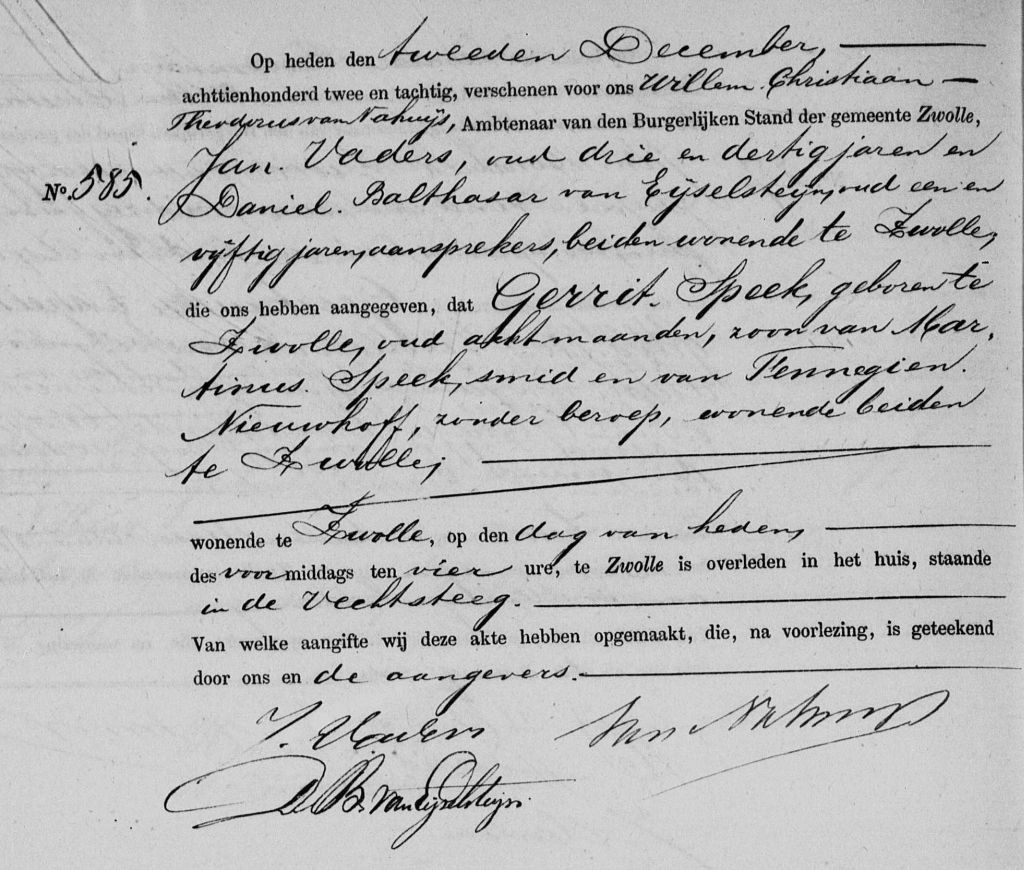 Op heden den tweeden December,
achttienhonderd twee en tachtig, verschenen voor ons Willem Christiaan
Theodorus van Nahuijs, Ambtenaar van den Burgerlijken Stand der gemeente Zwolle,
Jan Vaders, oud drie en dertig jaren en
No. 585. Daniel Balthasar van Eijselsteijn, oud een en
vijftig jaren, aansprekers, beiden wonende te Zwolle,
die ons hebben aangegeven, dat Gerrit Speek, geboren te
Zwolle, oud acht maanden, zoon van Mar,
tinus Speek, smid en van Fennegien
Nieuwhoff, zonder beroep, wonende beiden
te Zwolle;
wonende te Zwolle, op den dag van heden,
des voormiddags ten vier ure, te Zwolle is overleden in het huis, staande
in de Vechtsteeg.
Van welke aangifte wij deze akte hebben opgemaakt, die, na voorlezing, is geteekend
door ons en de aangevers.
J. Vaders van Nahuijs
D B van Eijselsteijn